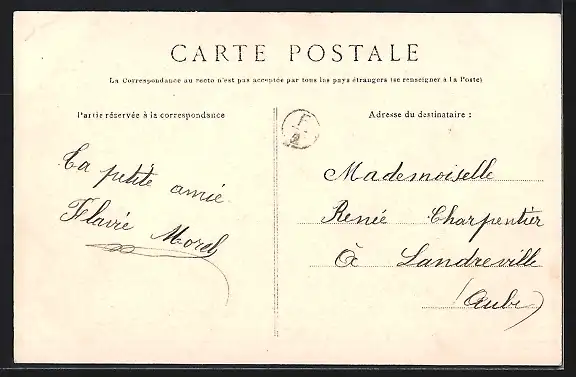 CARTE POSTALE
La Correspondance au recto n'est pas acceptée par tous les pays étrangers (se renseigner à la Poste)
Partie réservée à la correspondance
Ta petite amie
Flavie Morel
Adresse du destinataire :
Mademoiselle
Renée Charpentier
à Landreville
(Aube)